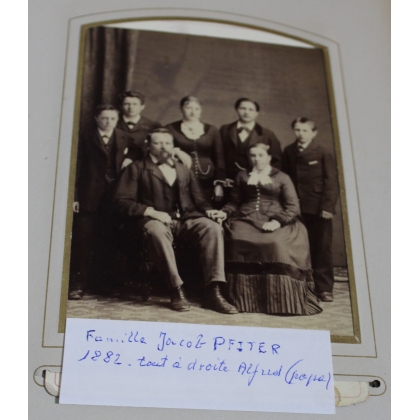 Famille Jacob PFITER
1882 - tout à droite Alfred (papa)